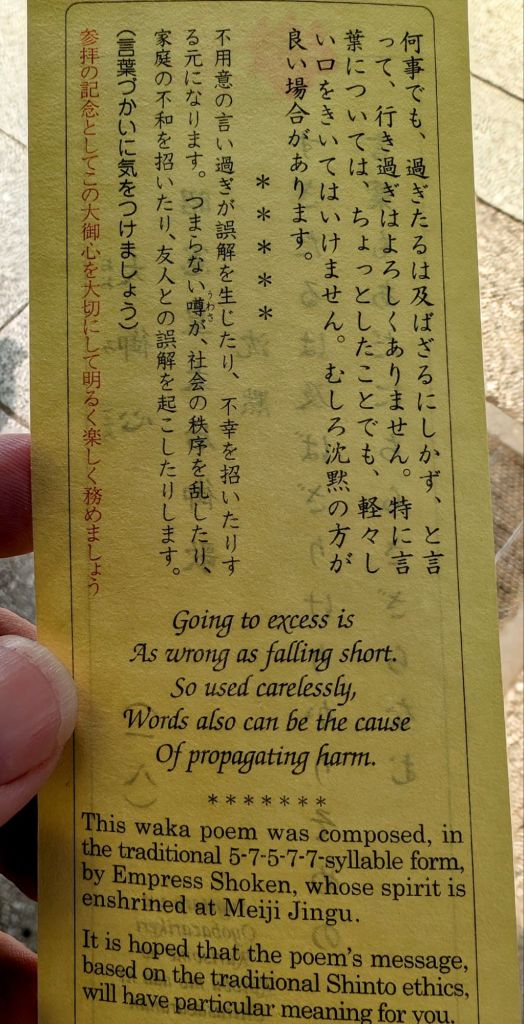 何事でも、過ぎたるは及ばざるにしかず、と言
って、行き過ぎはよろしくありません。特に言
葉については、ちょっとしたことでも、軽々し
い口をきいてはいけません。むしろ沈黙の方が
良い場合があります。
＊＊＊＊＊
不用意の言い過ぎが誤解を生じたり、不幸を招いたりす
る元になります。つまらない噂が、社会の秩序を乱したり、
うわさ
家庭の不和を招いたり、友人との誤解を起こしたりします。
(言葉づかいに気をつけましょう)
参拝の記念としてこの大御心を大切にして明るく楽しく務めましょう
Going to excess is
As wrong as falling short.
So used carelessly,
Words also can be the cause
Of propagating harm.
*******
This waka poem was composed, in
the traditional 5-7-5-7-7-syllable form,
by Empress Shoken, whose spirit is
enshrined at Meiji Jingu.
It is hoped that the poem's message,
based on the traditional Shinto ethics,
will have particular meaning for you.